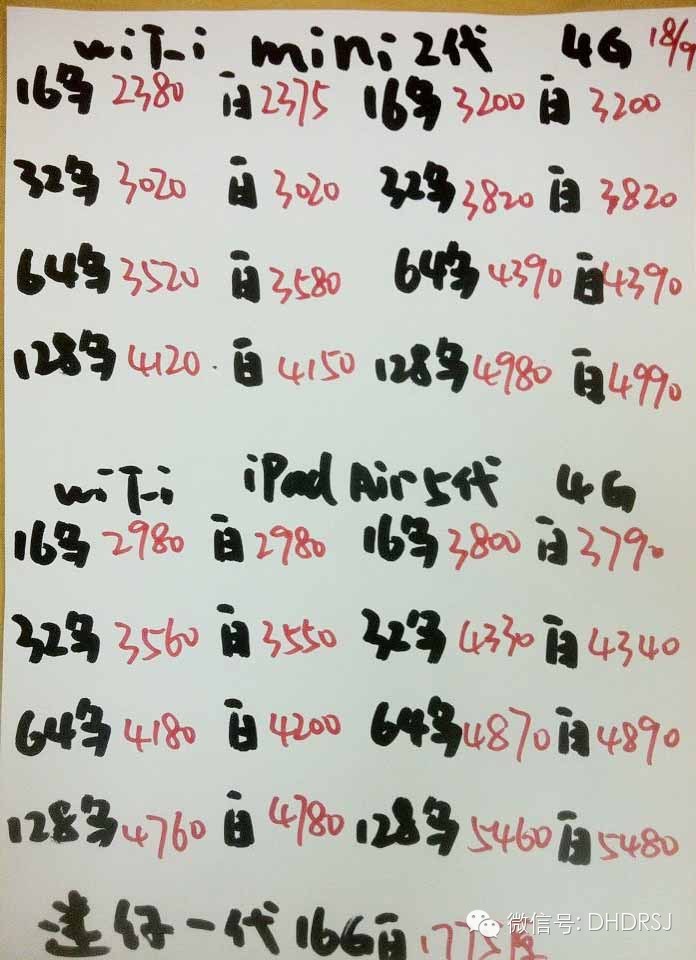 wiFi mini2代 4G 18/9
16多 2380 白 2375 16多 3200 白 3200
32多 3020 白 3020 32多 3820 白 3820
64多 3520 白 3580 64多 4390 白 4390
128多 4120 白 4150 128多 4980 白 4990
wiFi iPad Air 5代 4G
16多 2980 白 2980 16多 3800 白 3790
32多 3560 白 3550 32多 4330 白 4340
64多 4180 白 4200 64多 4870 白 4890
128多 4760 白 4780 128多 5460 白 5480
迷仔一代 16G 白 1775
微信号: DHDRSJ